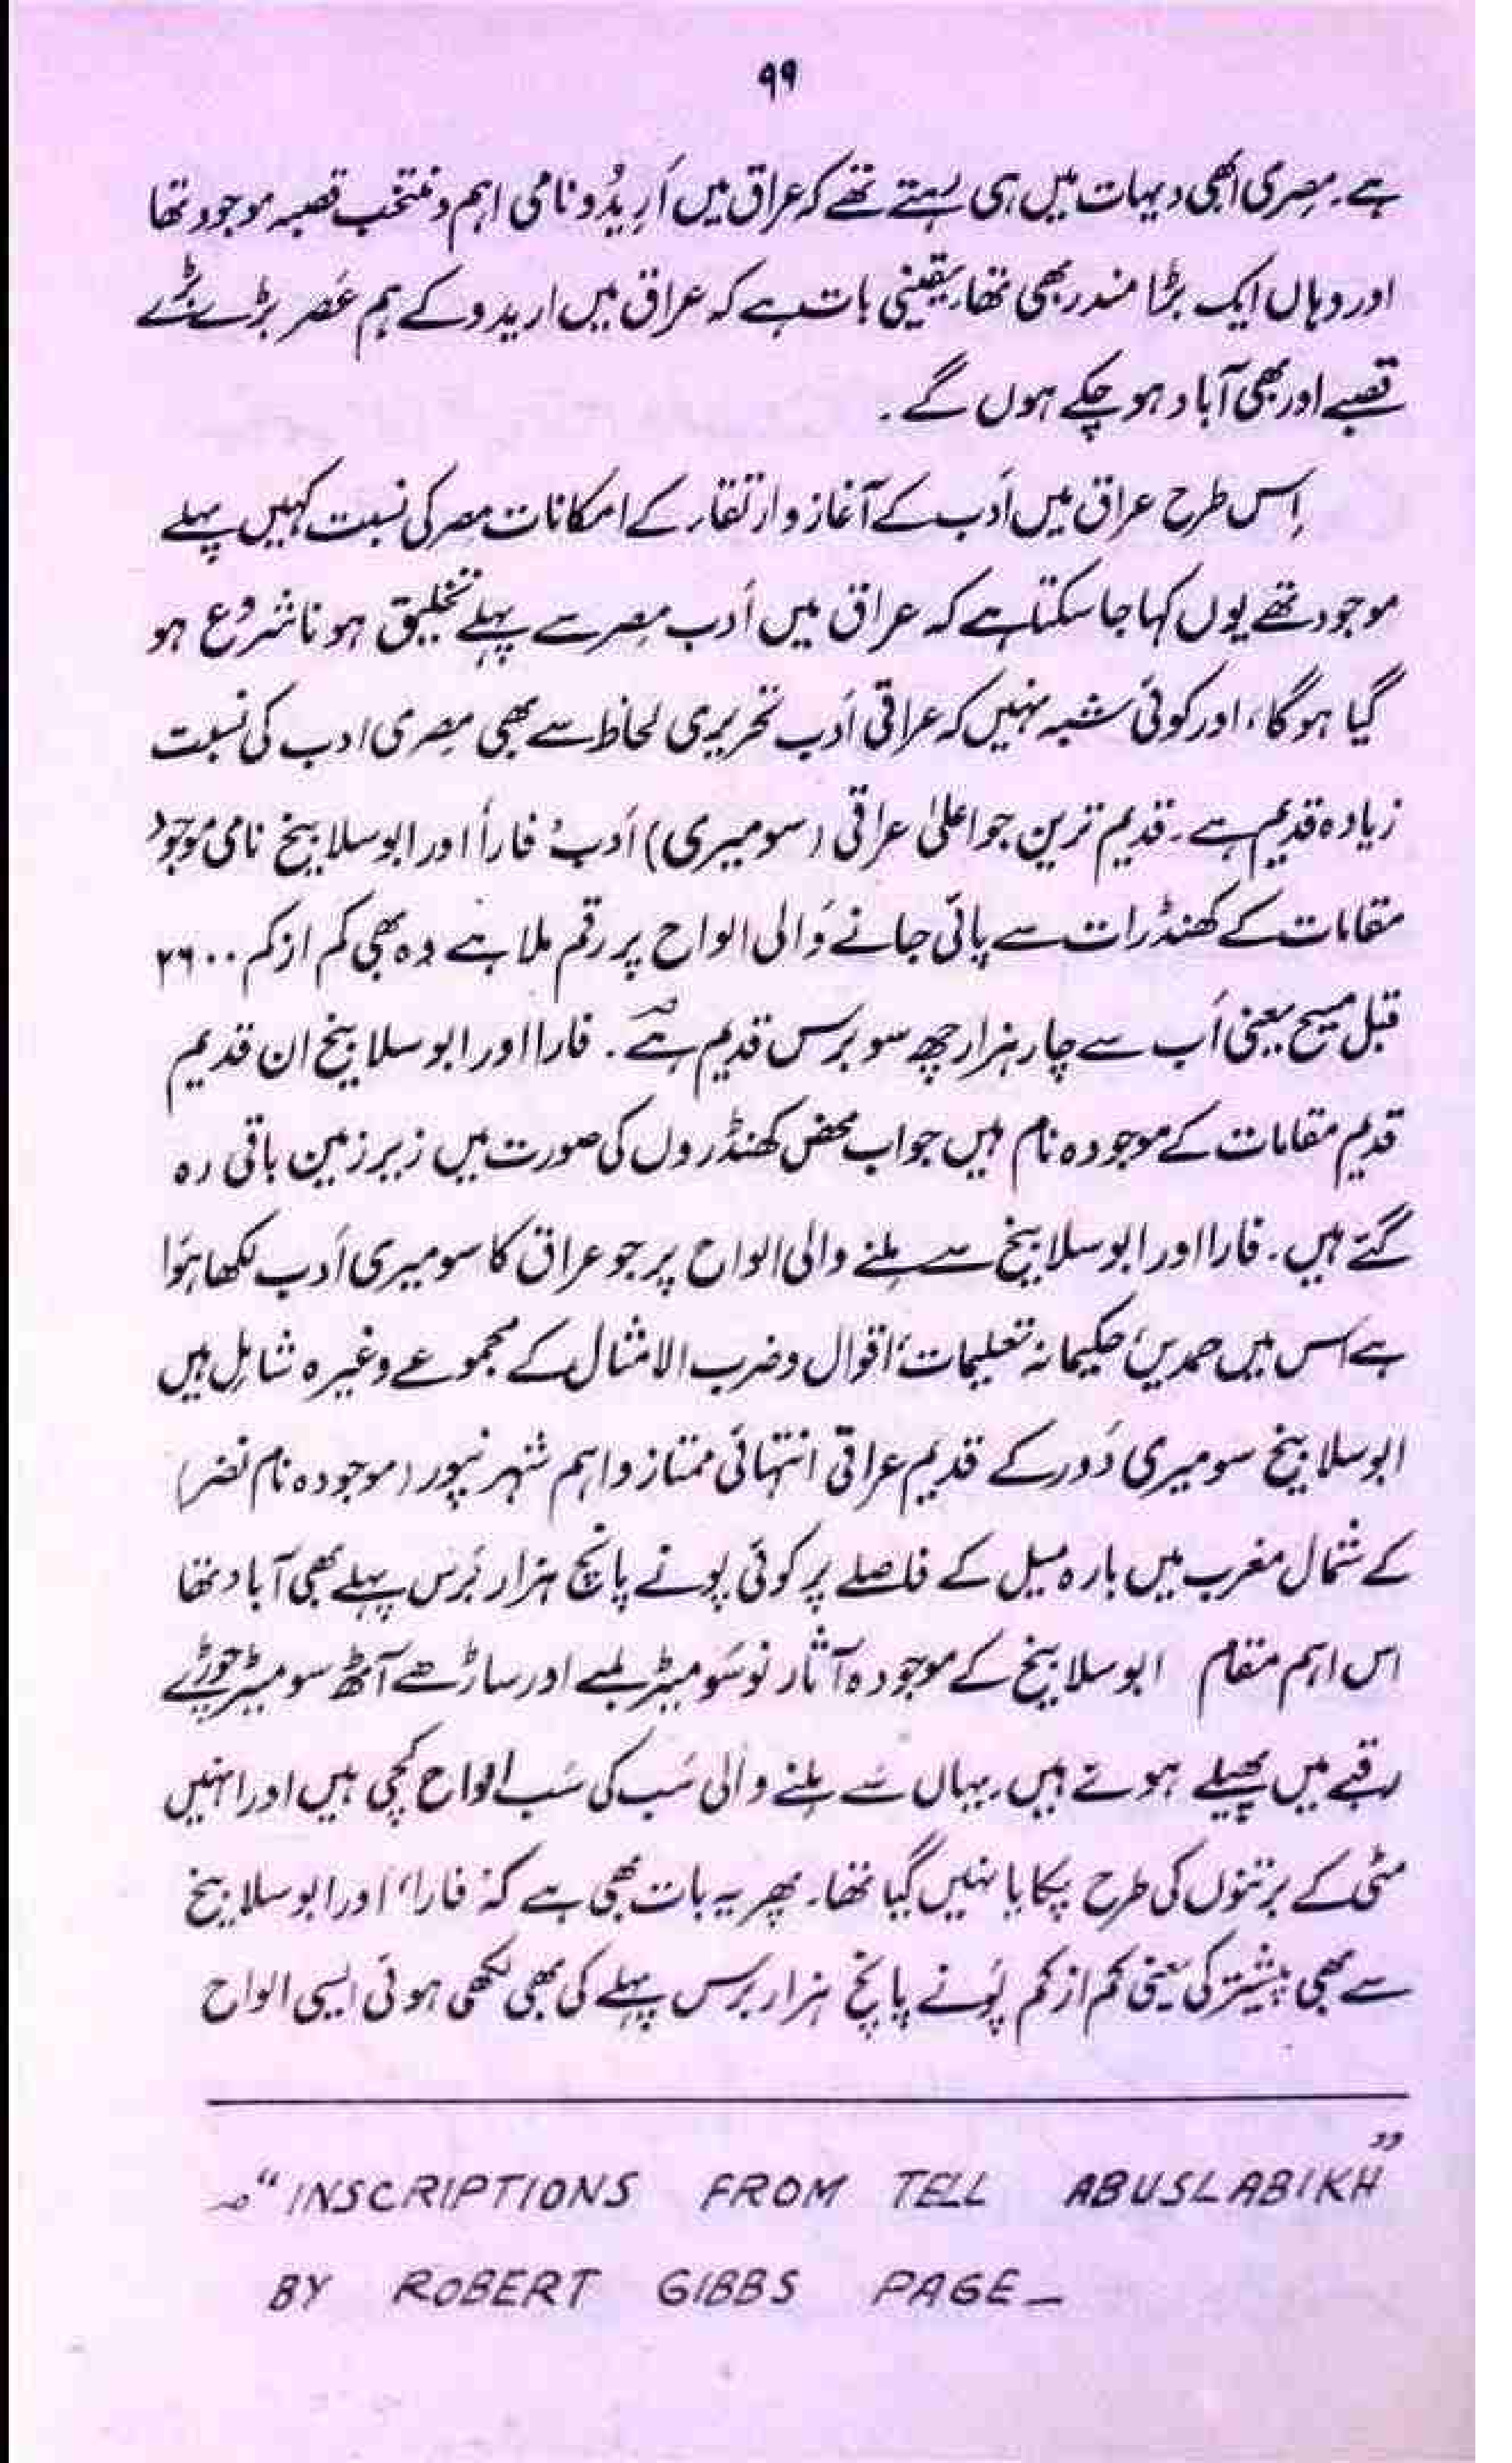 ۹۹
ہے۔ مِصری ابھی دیہات میں ہی بستے تھے کہ عراق میں اَرِیدُو نامی اہم و منتخب قصبہ موجود تھا
اور وہاں ایک بڑا مندر بھی تھا۔ یقینی بات ہے کہ عراق میں اریدو کے ہم عَصر بڑے بڑے
قصبے اور بھی آباد ہو چکے ہوں گے۔
اِس طرح عراق میں اَدب کے آغاز و ارتقار کے امکانات مصر کی نسبت کہیں پہلے
موجود تھے یوں کہا جا سکتا ہے کہ عراق میں اَدب مِصر سے پہلے تخلیق ہونا شروع ہو
گیا ہوگا، اور کوئی شبہ نہیں کہ عراقی اَدب تحریری لحاظ سے بھی مِصری ادب کی نسبت
زیادہ قدیم ہے۔ قدیم ترین جو اعلیٰ عراقی (سومیری) اَدب 'فارا' اور ابوسلابیخ نامی موجود
مقامات کے کھنڈرات سے پائی جانے والی الواح پر رقم ملا ہے وہ بھی کم از کم ۲۶۰۰
قبل مسیح یعنی اَب سے چار ہزار چھ سو برس قدیم ہے۔ فارا اور ابوسلابیخ ان قدیم
قدیم مقامات کے موجودہ نام ہیں جو اب محض کھنڈروں کی صورت میں زیر زمین باقی رہ
گئے ہیں۔ فارا اور ابوسلابیخ سے ملنے والی الواح پر جو عراق کا سومیری اَدب لکھا ہوا
ہے اس میں حمدیں، حکیمانہ تعلیمات، اقوال و ضرب الامثال کے مجموعے وغیرہ شامِل ہیں
ابوسلابیخ سومیری دَور کے قدیم عراقی انتہائی ممتاز و اہم شہر نیپور (موجودہ نام نضر)
کے شمال مغرب میں بارہ میل کے فاصلے پر کوئی پونے پانچ ہزار بَرس پہلے بھی آباد تھا
اس اہم مقام ابوسلابیخ کے موجودہ آثار نو سَو میٹر لمبے اور ساڑھے آٹھ سو میٹر چوڑے
رقبے میں پھیلے ہوتے ہیں۔ یہاں سے ملنے والی سَب کی سَب الواح کچی ہیں اور انہیں
مٹی کے برتنوں کی طرح پکایا نہیں گیا تھا۔ پھر یہ بات بھی ہے کہ 'فارا' اور ابوسلابیخ
سے بھی پیشتر کی یعنی کم از کم پَونے پانچ ہزار برس پہلے کی بھی لکھی ہوئی ایسی الواح
"INSCRIPTIONS FROM TELL ABUSLABIKH"
BY ROBERT GIBBS PAGE_